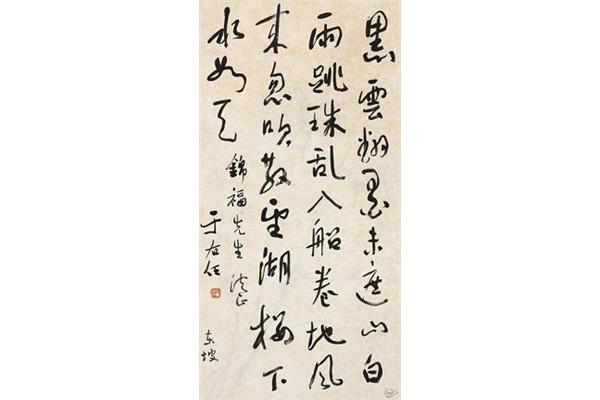 黑雲翻墨未遮山白
雨跳珠乱入船卷地風
來忽吹散望湖楼下
水如天
東坡
錦福先生法正
于右任